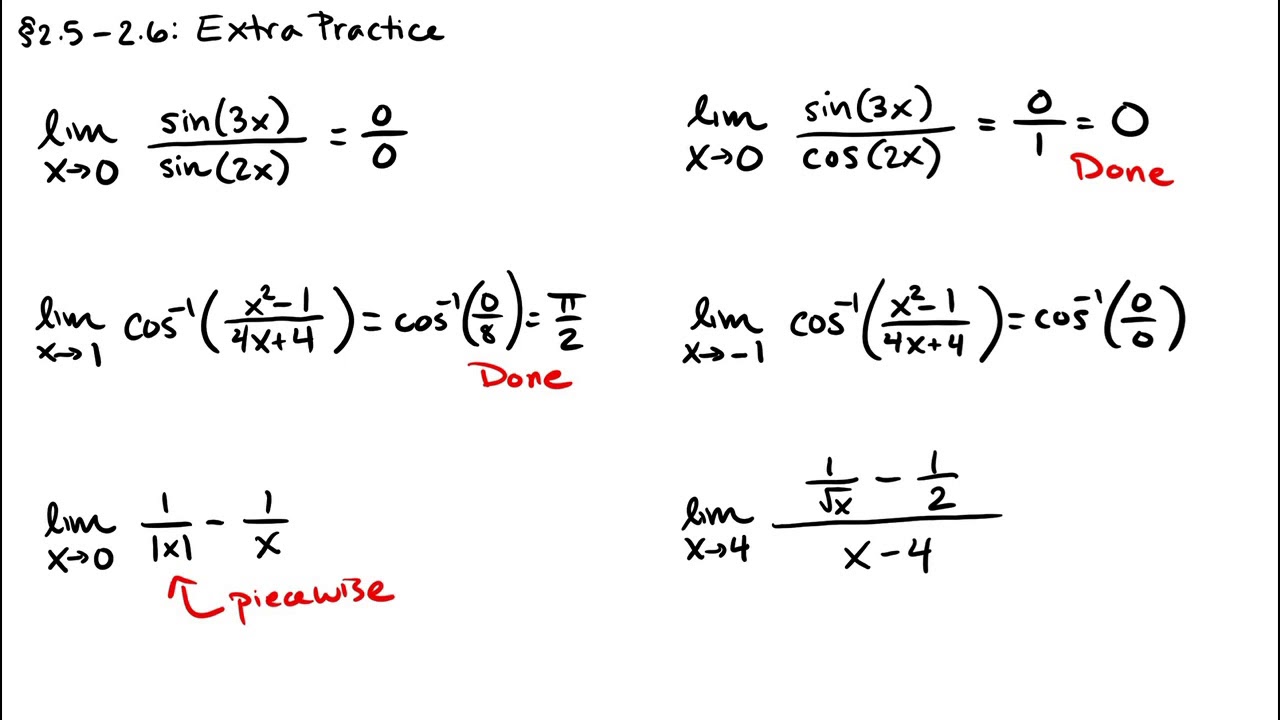 §2.5-2.6: Extra Practice
lim x→0 sin(3x)/sin(2x) = 0/0
lim x→0 sin(3x)/cos(2x) = 0/1 = 0
Done
lim x→1 cos⁻¹((x²-1)/(4x+4)) = cos⁻¹(0/8) = π/2
Done
lim x→-1 cos⁻¹((x²-1)/(4x+4)) = cos⁻¹(0/0)
lim x→0 1/|x| - 1/x
piecewise
lim x→4 (1/√x - 1/2)/(x-4)